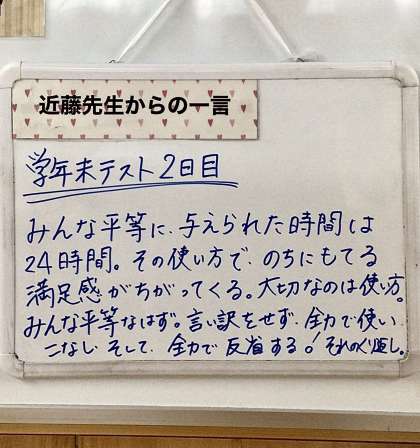 近藤先生からの一言
学年末テスト2日目
みんな平等に、与えられた時間は
24時間。その使い方で、のちにもてる
満足感がちがってくる。大切なのは使い方。
みんな平等なはず。言い訳をせず、全力で使い
こなし、そして、全力で反省する!それのくり返し。